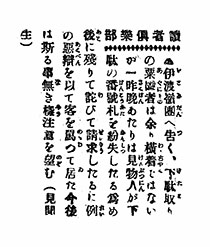 讀者倶樂部
▲伊 へ告ぐ、下駄取り
の 者は余り横着ではない
か一昨晩あたりは見物人が下
駄の番號札を紛失したる爲め
後に殘りて詫びて請求したるに例
の惡辯を以て客を罵つて居た今後
は斯る事無き樣注意を望む(見聞
生)